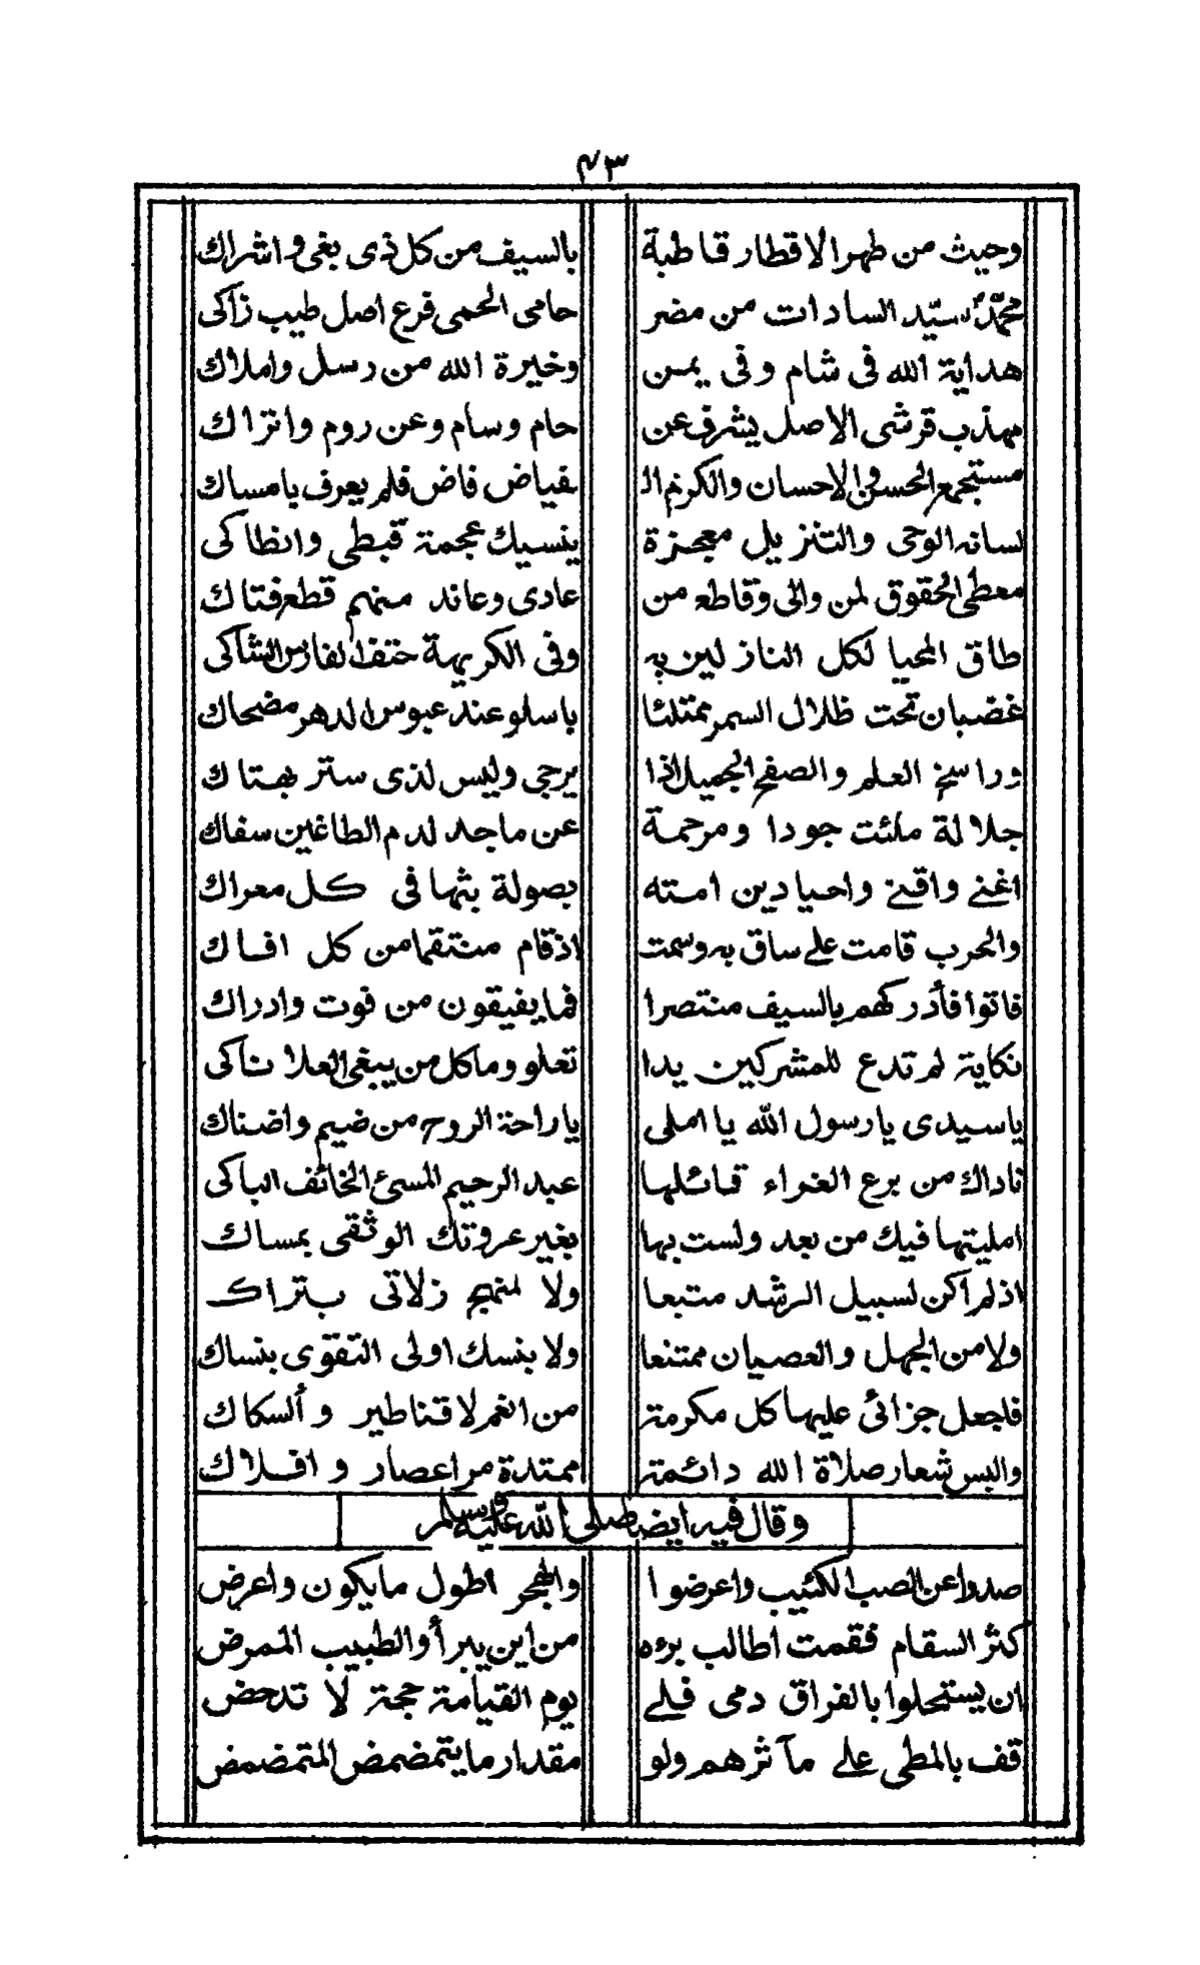 ٤٣
وحيث من طهر الاقطار قاطبة بالسيف من كل ذى بغى واشراك
محمّد سيّد السادات من مضر حامى الحمى فرع اصل طيب زاكى
هداية الله فى شام وفى يمن وخيرة الله من رسل واملاك
مهذب قرشى الاصل يشرف عن حام وسام وعن روم واتراك
مستجمع الحسن والاحسان والكرم ال فياض فاض فلم يعرف بامساك
لسانه الوحى والتنزيل معجزة ينسيك عجمة قبطى وانطاكى
معطى الحقوق لمن والى وقاطع من عادى وعاند منهم قطع فتاك
طاق المحيا لكل النازلين به وفى الكريهة حتف الفارس الشاكى
غضبان تحت ظلال السمر ممتلئا باسلو عند عبوس الدهر مضحاك
وراسخ العلم والصفح الجميل اذا يرجى وليس لذى ستر بهتاك
جلالة ملئت جودا ومرحمة عن ماجد لدم الطاغين سفاك
اغنى واقنى واحيا دين امته بصولة بثها فى كل معراك
والحرب قامت على ساق به وسمت اذ قام منتقما من كل افاك
فاتوا فأدركهم بالسيف منتصرا فما يفيقون من فوت وادراك
نكاية لم تدع للمشركين يدا تعلو وما كل من يبغى العلا ناكى
ياسيدى يارسول الله يا املى ياراحة الروح من ضيم واضناك
ناداك من برع الغراء قائلها عبد الرحيم المسئ الخائف الباكى
امليتها فيك من بعد ولست بها بغير عروتك الوثقى بمساك
اذ لم اكن لسبيل الرشد متبعا ولا لمنهج زلاتى بتراك
ولا من الجهل والعصيان ممتنعا ولا بنسك اولى التقوى بنساك
فاجعل جزائى عليها كل مكرمة من انعم لا قناطير وألسكاك
والبس شعار صلاة الله دائمة ممتدة مراعصار وافلاك
وقال فيه ايضا صلى الله عليه وسلم
صدوا عن الصب الكئيب واعرضوا والهجر اطول مايكون واعرض
كثر السقام فقمت اطالب برءه من اين يبرأ والطبيب الممرض
ان يستحلوا بالفراق دمى فلى يوم القيامة حجة لا تدحض
قف بالمطى على مآثرهم ولو مقدار ما يتمضمض المتمضمض